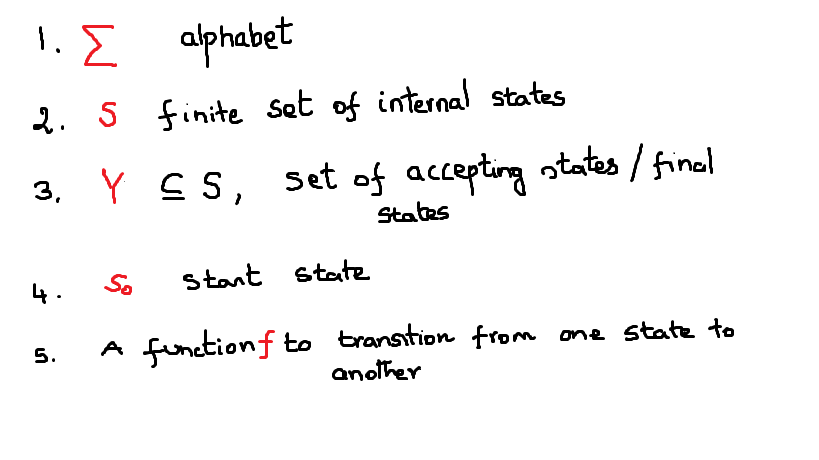 1. Σ alphabet
2. S finite set of internal states
3. Y ⊆ S, set of accepting states / final
states
4. S₀ start state
5. A function f to transition from one state to
another